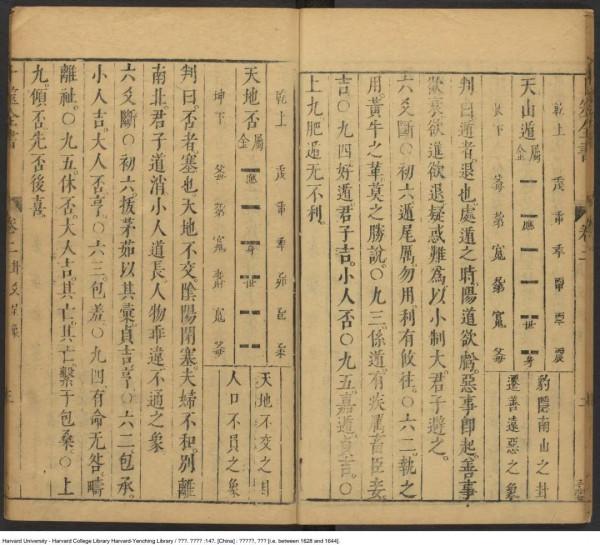 天山遁
屬金
乾上
艮下
應
世
身
豹隱南山之卦
遷善遠惡之象
判曰遁者退也處遁之時陽道欲虧惡事即起善事
欲衰欲進欲退疑惑難為以小制大君子避之
六爻斷〇初六遁尾厲勿用利有攸往〇六二執之
用黃牛之革莫之勝說〇九三係遁有疾厲畜臣妾
吉〇九四好遁君子吉小人否〇九五嘉遁貞吉〇
上九肥遁无不利
卷二
天地否
屬金
乾上
坤下
應
世
天地不交之
人口不員之象
判曰否者塞也天地不交陰陽閉塞夫婦不和別離
南北君子道消小人道長人物乖違不通之象
六爻斷〇初六拔茅茹以其彙貞吉亨〇六二包承
小人吉大人否亨〇六三包羞〇九四有命无咎疇
離祉〇九五休否大人吉其亡其亡繫于包桑〇上
九傾否先否後喜
全書
卷二
Harvard University - Harvard College Library Harvard-Yenching Library / ???. ???? :147. [China] : ?????, ??? [i.e. between 1628 and 1644].